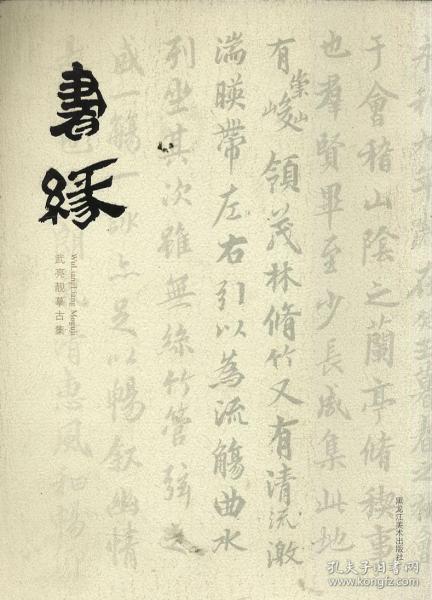 書緣
武亮靓摹古集
WuLiangLiang Moguji
永和九年歲在癸丑暮春之初
于會稽山陰之蘭亭脩稧事
也羣賢畢至少長咸集此地
有崇山峻領茂林脩竹又有清流激
湍暎帶左右引以為流觴曲水
列坐其次雖無絲竹管弦之
盛一觴一詠亦足以暢敘幽情
惠風和暢
黑龙江美术出版社
孔夫子旧书网
www.kongfz.com